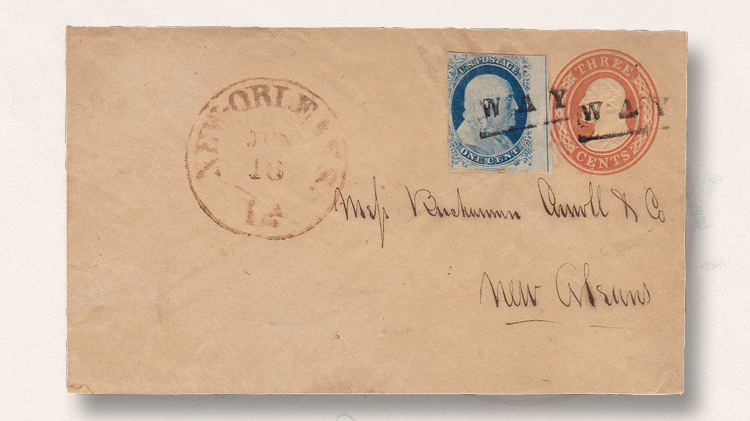 NEW-ORLEANS
JUN
16
LA
U.S. POSTAGE
ONE CENT
WAY
THREE
CENTS
WAY
Mess Buchannan Carroll & Co
New Orleans